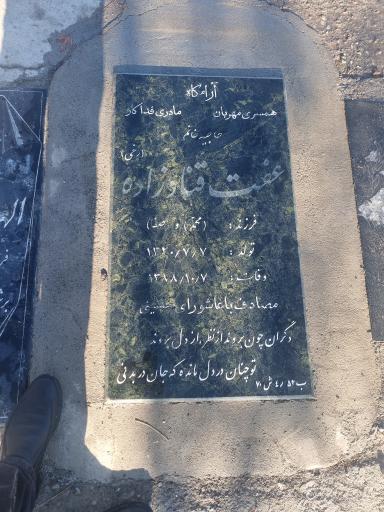 آرامگاه
همسری مهربان مادری فداکار
حاجیه خانم
عفت قنادزاده
فرزند: (محمد) و
تولد: ۱۳۲۰/۷/۷
وفات: ۱۳۸۸/۱۰/۷
مصادف با عاشورای حسینی
دگران چون بروند از نظر، از دل بروند
تو چنان در دل مانده که جان در بدنی